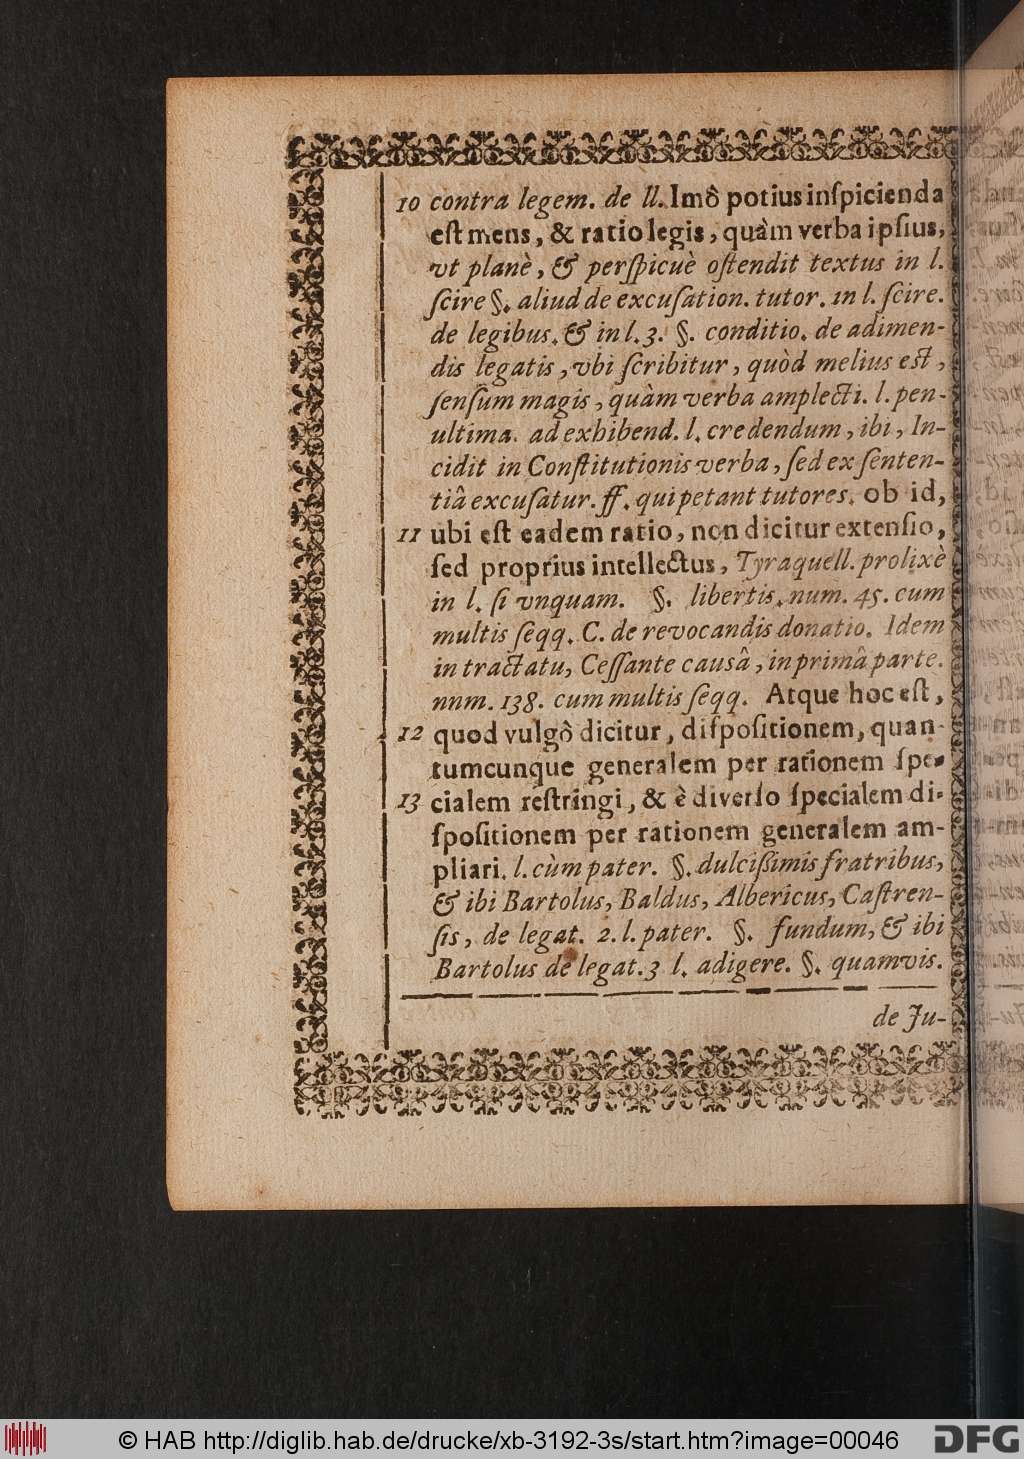 10 contra legem. de ll. Imô potius inſpicienda
eſt mens, & ratio legis, quàm verba ipſius,
vt planè, & perſpicuè oſtendit textus in l.
ſcire §. aliud de excuſation. tutor. in l. ſcire.
de legibus. & in l. 3. §. conditio. de adimen-
dis legatis, vbi ſcribitur, quòd melius eſt,
ſenſûm magis, quàm verba amplecti. l. pen-
ultima. ad exhibend. l. credendum, ibi, In-
cidit in Conſtitutionis verba, ſed ex ſenten-
tiâ excuſatur. ff. qui petant tutores. ob id,
11 ubi eſt eadem ratio, non dicitur extenſio,
ſed proprius intellectus, Tyraquell. prolixè
in l. ſi vnquam. §. libertis. num. 45. cum
multis ſeqq. C. de revocandis donatio. Idem
in tractatu, Ceſſante causâ, in primâ parte.
nnm. 138. cum multis ſeqq. Atque hoc eſt,
12 quod vulgò dicitur, diſpoſitionem, quan-
tumcunque generalem per rationem ſpe-
13 cialem reſtringi, & è diverſo ſpecialem di-
ſpoſitionem per rationem generalem am-
pliari. l. cùm pater. §. dulciſſimis fratribus,
& ibi Bartolus, Baldus, Albericus, Caſtren-
ſis, de legat. 2. l. pater. §. fundum, & ibi
Bartolus de legat. 3 l. adigere. §. quamvis.
de Ju-
© HAB http://diglib.hab.de/drucke/xb-3192-3s/start.htm?image=00046
DFG